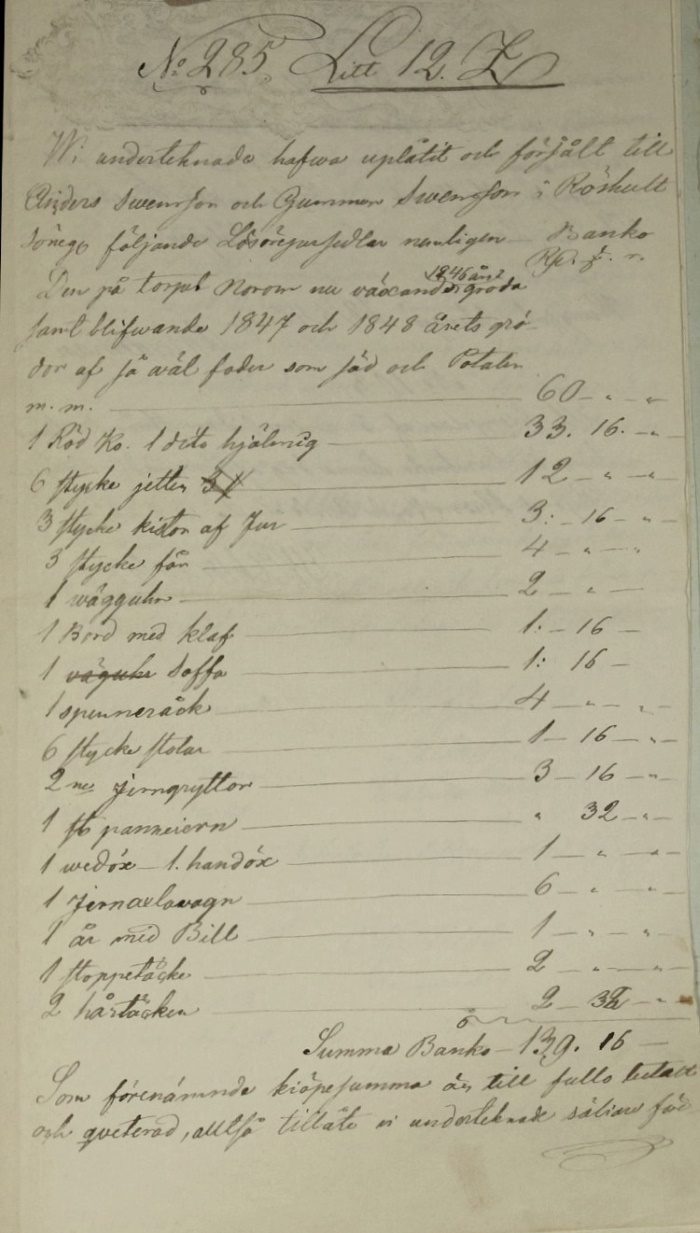 No 285 Litt 12. Z
Wi underteknade hafwa uplåtit och försålt till
Anders Swensson och Gummon Swensson i Röshult
följande Lösörepersedlar nemligen — Banko
Rd. s. r.
1846 års
Den på torpet Norom nu växande gröda
samt blifwande 1847 och 1848 årets grö-
dor af så wäl foder som säd och Potates
m. m. — 60 — „ — „
1 Röd Ko. 1 dito hjälmig — 33. 16. — „
6 stycke jetter — 12 — „ — „
3 stycke kistor af Fur — 3: — 16 — „
3 stycke får — 4 — „ — „
1 wägguhr — 2 — „ —
1 Bord med klaf — 1: — 16 —
1 väguhr Soffa — 1: 16 —
1 spenneråck — 4 — „ — „
6 stycke stolar — 1 — 16 — „
2ne jerngryttor — 3 — 16 — „
1 st panneiern — „ 32 — „
1 wedöx — 1. handöx — 1 — „ — „
1 Jernaxlavagn — 6 — „ — „
1 år med Bill — 1 — „ — „
1 stoppetäcke — 2 — „ — „
2 hårtäcken — 2 — 32 — „
Summa Banko — 139. 16 —
Som förenämnde kiöpesumma är till fullo betalt
och qveterad, alltså tillåte vi underteknade säliare för